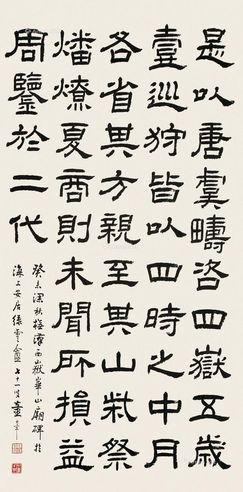 是以唐虞疇咨四嶽五歲
壹巡狩皆以四時之中月
各省其方親至其山柴祭
燔燎夏商則未聞所損益
周鑒於二代
癸未深秋漢西嶽華山廟碑於
海上安居綠雲盦七十一叟童